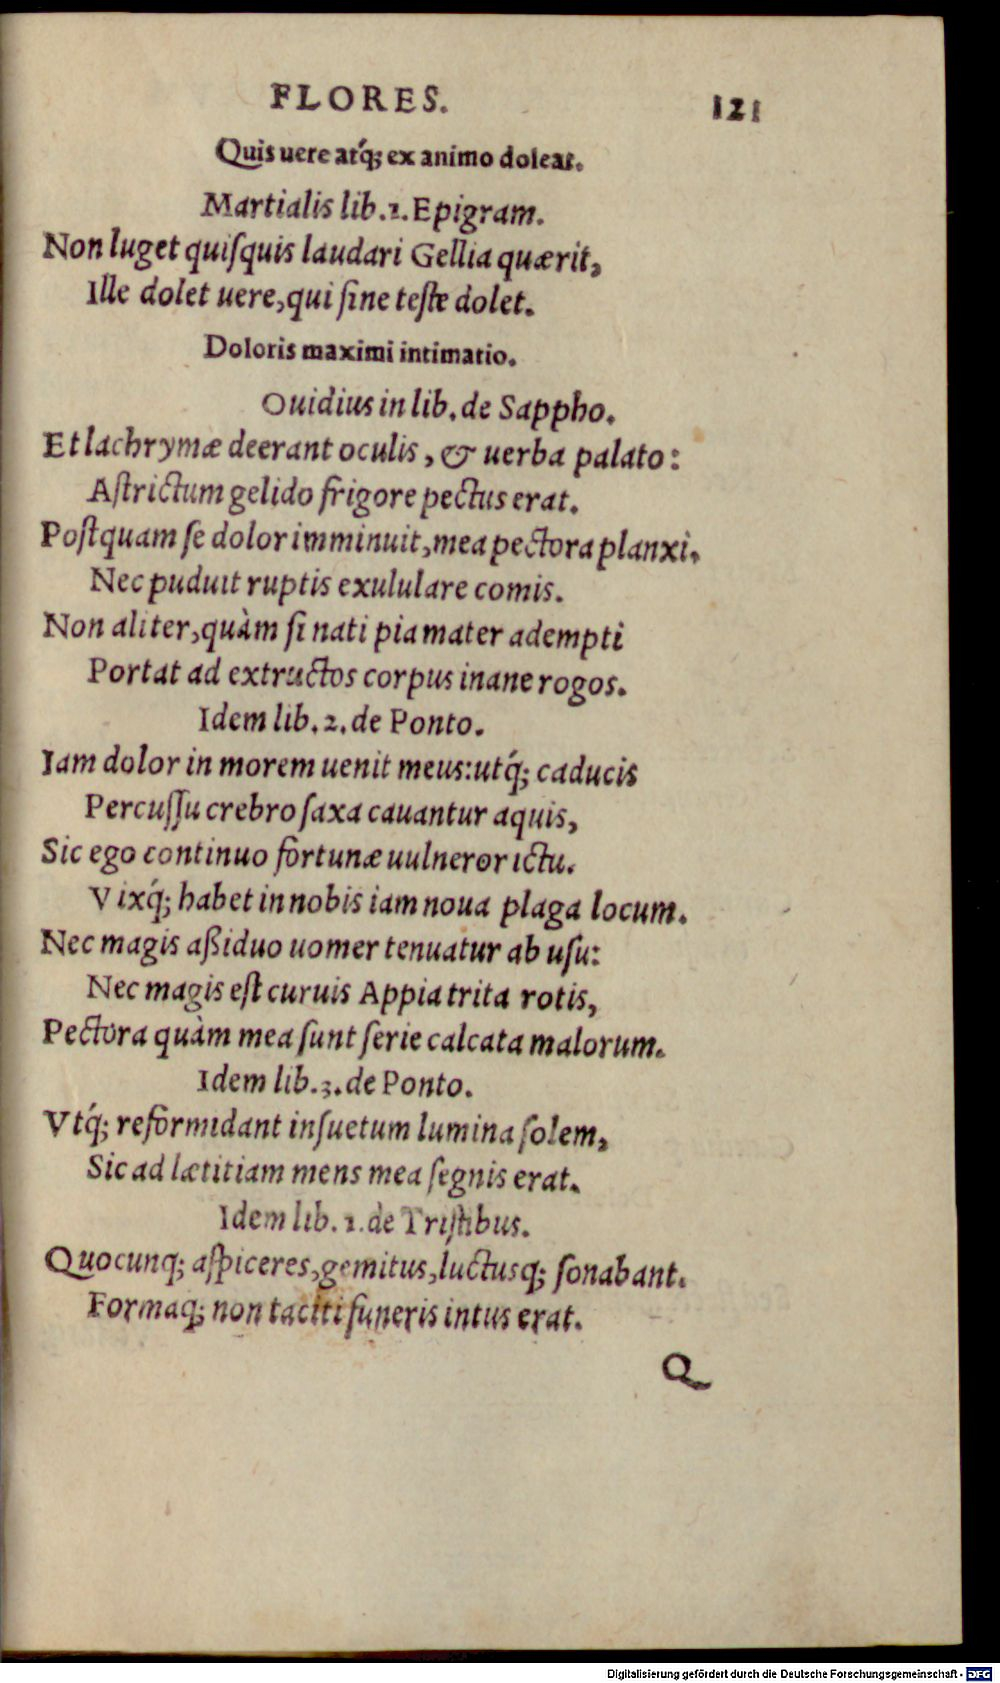 FLORES. 121
Quis uere atq́; ex animo doleat.
Martialis lib.1.Epigram.
Non luget quiſquis laudari Gellia quærit,
Ille dolet uere,qui ſine teſte dolet.
Doloris maximi intimatio.
Ouidius in lib. de Sappho.
Et lachrymæ deerant oculis, & uerba palato:
Aſtrictum gelido frigore pectus erat.
Poſtquam ſe dolor imminuit,mea pectora planxi,
Nec puduit ruptis exululare comis.
Non aliter,quàm ſi nati pia mater adempti
Portat ad extructos corpus inane rogos.
Idem lib.2.de Ponto.
Iam dolor in morem uenit meus:utq́; caducis
Percuſſu crebro ſaxa cauantur aquis,
Sic ego continuo fortunæ uulneror ictu.
Vixq́; habet in nobis iam noua plaga locum.
Nec magis aßiduo uomer tenuatur ab uſu:
Nec magis eſt curuis Appia trita rotis,
Pectora quàm mea ſunt ſerie calcata malorum.
Idem lib.3.de Ponto.
Vtq́; reformidant inſuetum lumina ſolem,
Sic ad lætitiam mens mea ſegnis erat.
Idem lib.1.de Triſtibus.
Quocunq; aſpiceres,gemitus,luctusq; ſonabant.
Formaq; non taciti funeris intus erat.
Q
Digitalisierung gefördert durch die Deutsche Forschungsgemeinschaft - DFG